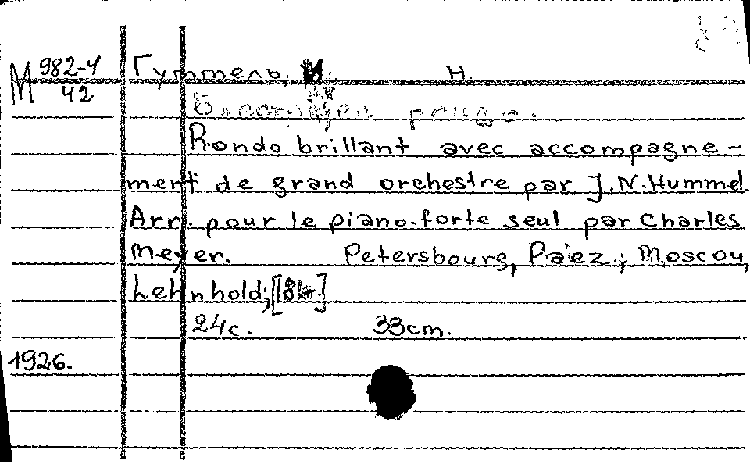 М 982-4/42
Гуммель, И. Н.
Rondo brillant avec accompagne-
ment de grand orchestre par J.N.Hummel
Arr. pour le piano-forte seul par Charles
Meyer. Petersbourg, Paez; Moscou,
Lehnhold,
24с. 33cm.
1926.